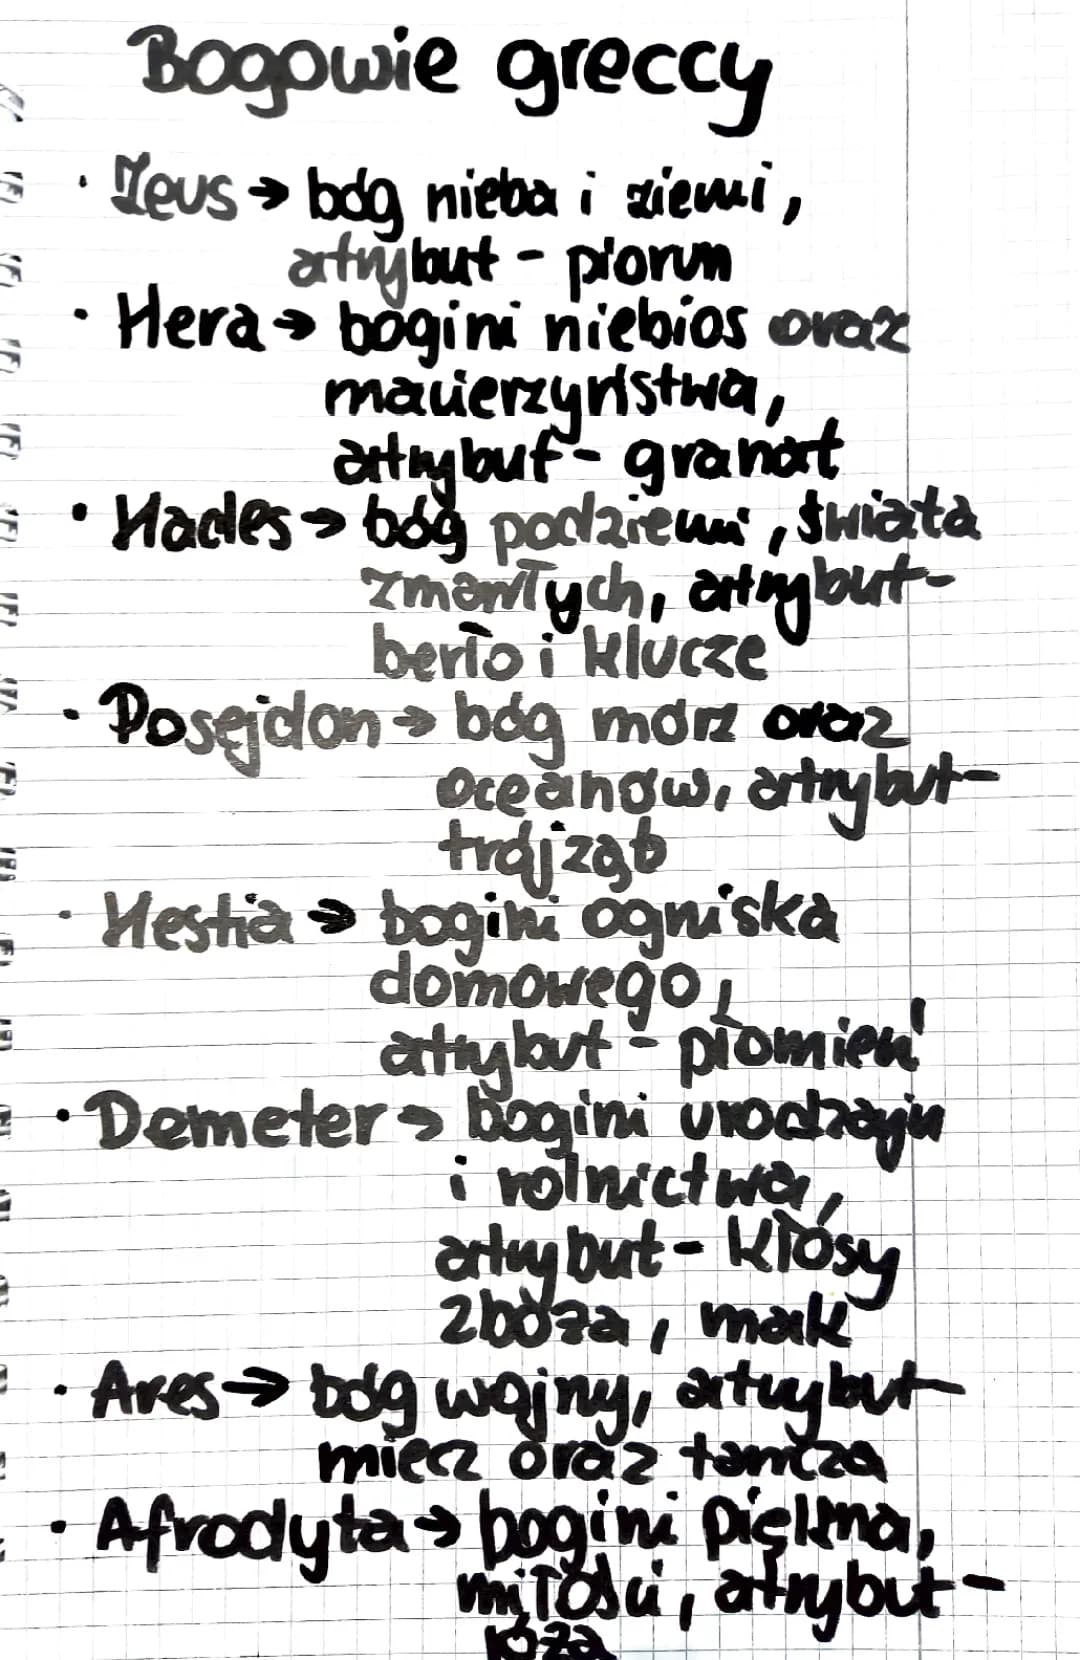 Bogowie greccy
· Zeus → bóg nieba i ziemi,
atrybut - piorun
· Hera → bogini niebios oraz
macierzyństwa,
atrybut - granat
· Hades → bóg podziemi, świata
zmarłych, atrybut -
berło i klucze
· Posejdon → bóg mórz oraz
oceanów, atrybut -
trójząb
· Hestia → bogini ogniska
domowego,
atrybut - płomień
· Demeter → bogini urodzaju
i rolnictwa,
atrybut - kłosy
zboża, mak
· Ares → bóg wojny, atrybut -
miecz oraz tarcza
· Afrodyta → bogini piękna,
miłości, atrybut -
róża